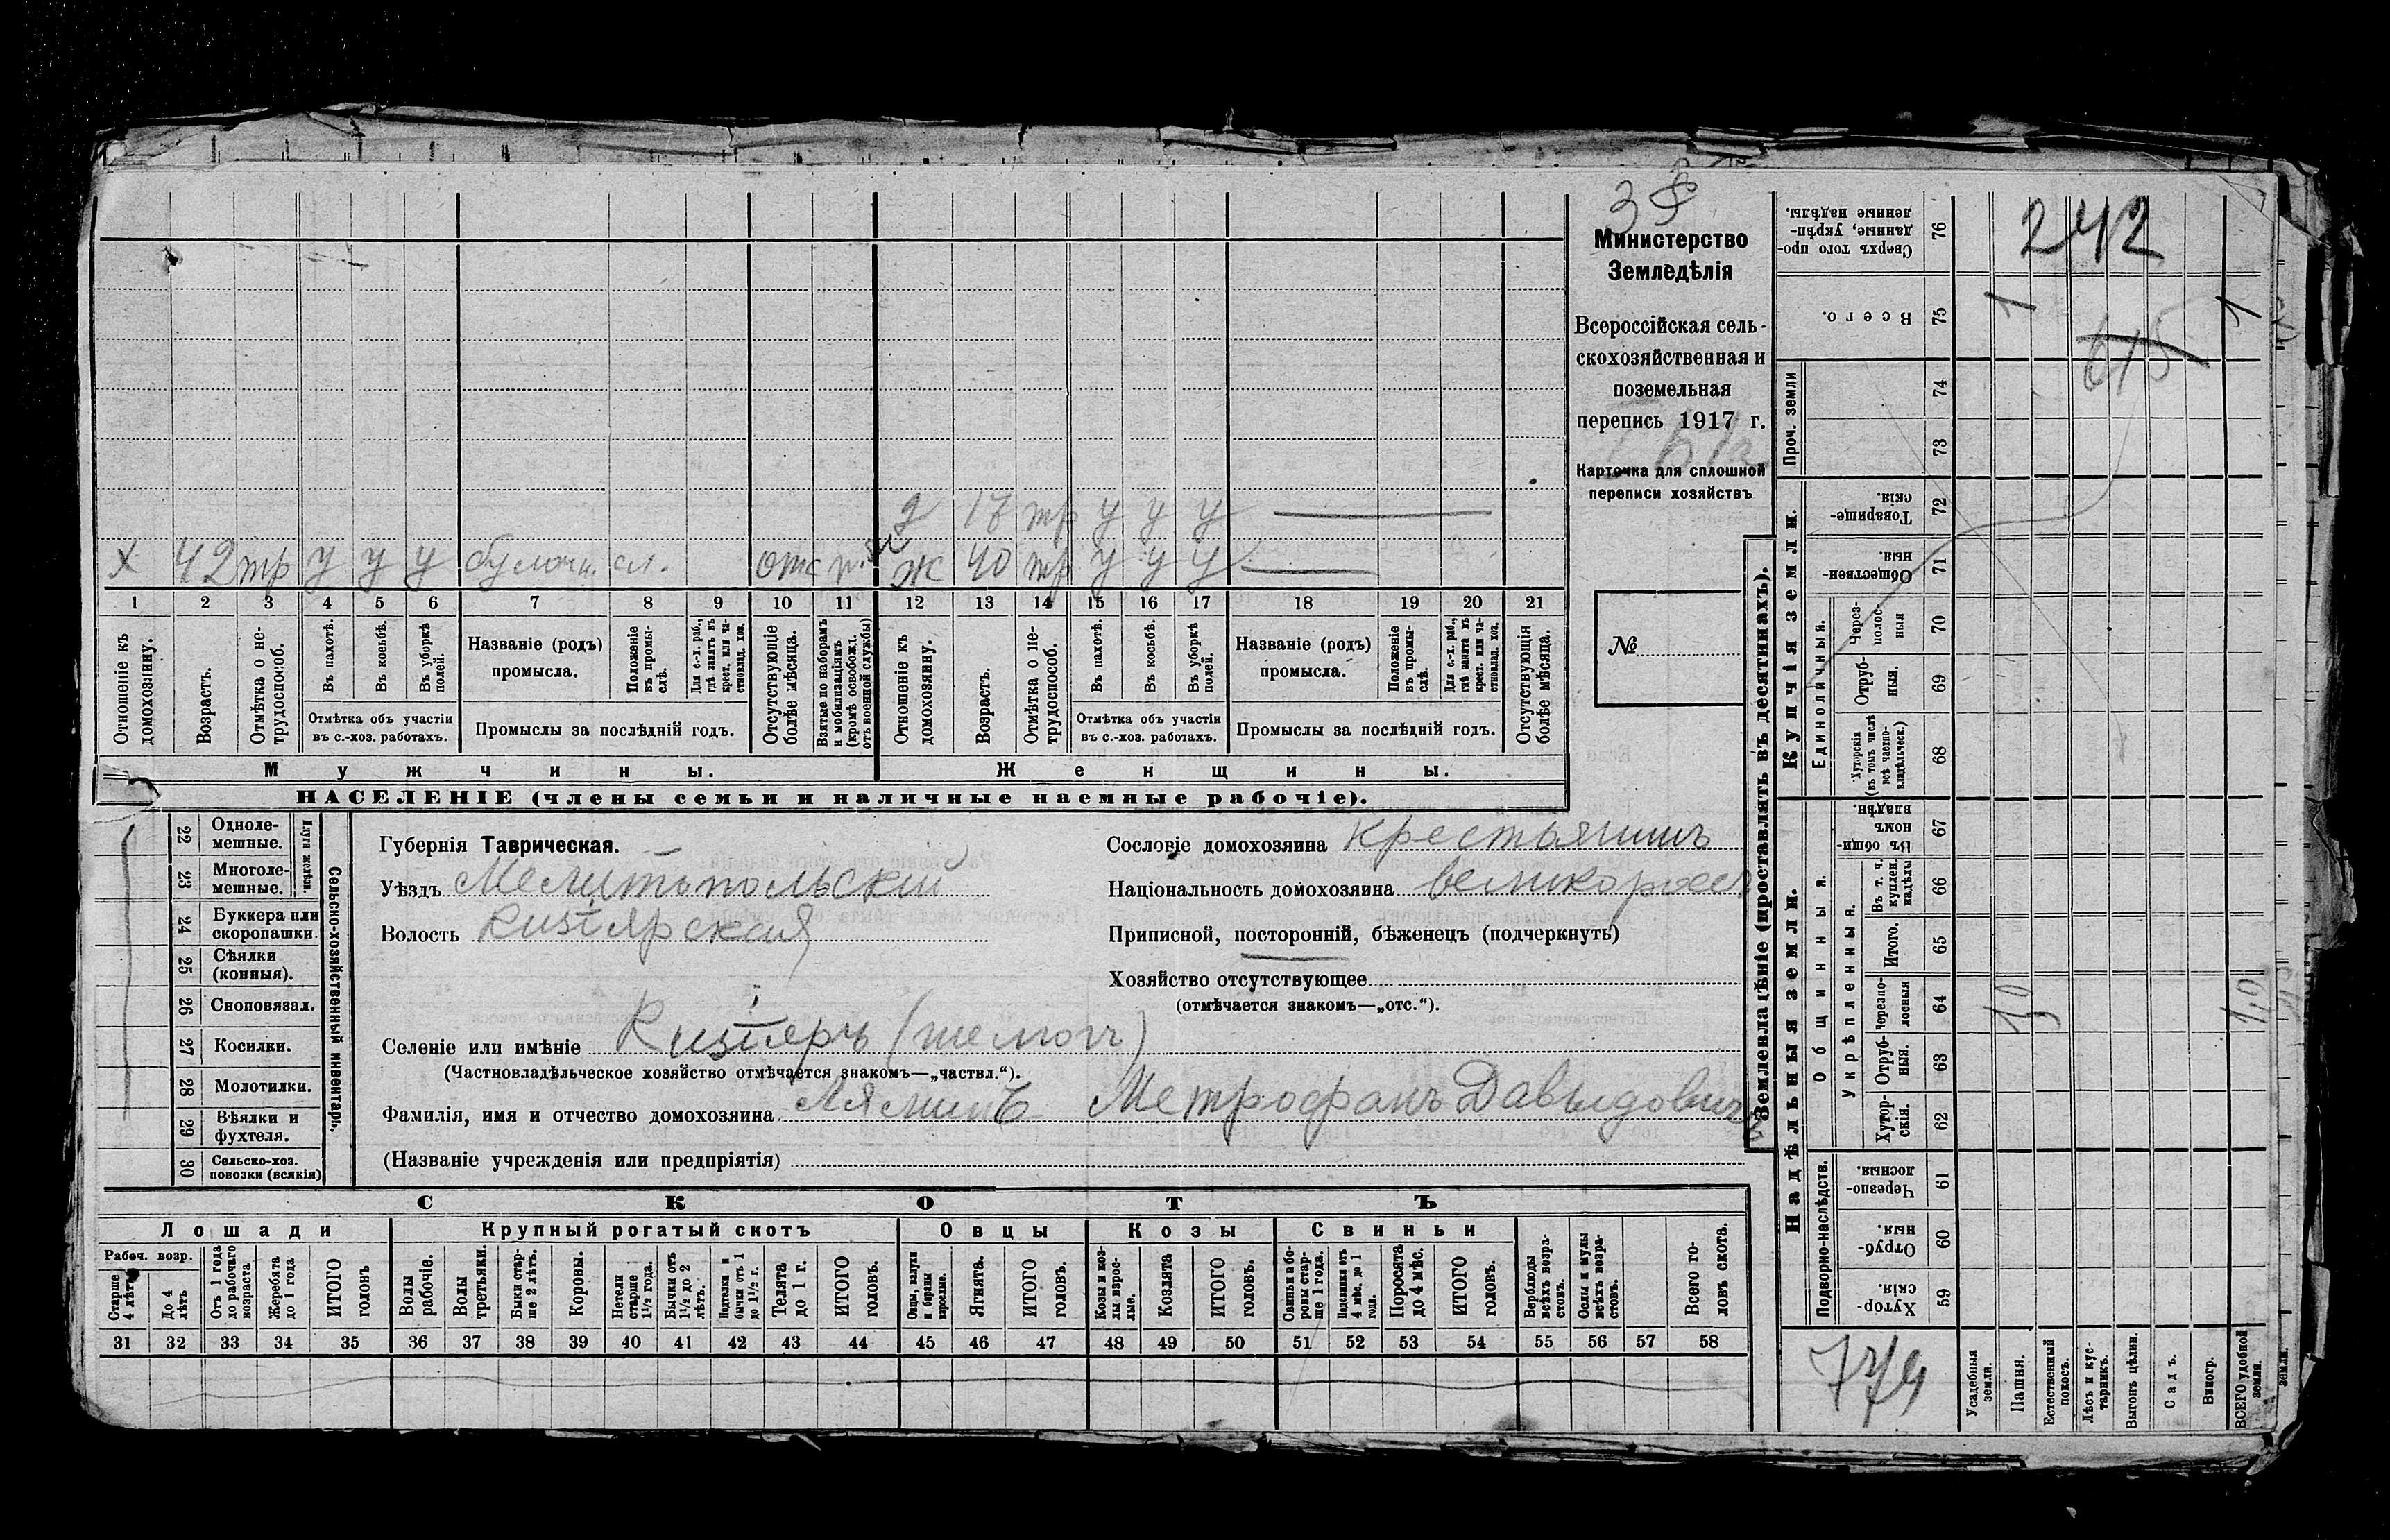 Министерство
Земледѣлія
Всероссійская сель-
скохозяйственная и
поземельная
перепись 1917 г.
Карточка для сплошной
переписи хозяйствъ
№
242
д 17 тр у у у
х 42 тр у у у отх ж 40 тр у у у
1 2 3 4 5 6 7 8 9 10 11 12 13 14 15 16 17 18 19 20 21
Отношеніе къ домохозяину.
Возрастъ.
Отмѣтка о не-трудоспособ.
Въ пахотѣ.
Въ косьбѣ.
Въ уборкѣ полей.
Отмѣтка объ участіи
въ с.-хоз. работахъ.
Названіе (родъ)
промысла.
Положеніе въ промы-слѣ.
Для с.-х. раб., гдѣ занятъ въ крест. или ча-стновлад. хоз.
Промыслы за послѣдній годъ.
Отсутствующіе болѣе мѣсяца.
Взятые по наборамъ и мобилизаціямъ (кромѣ освобожд. отъ военной службы)
Отношеніе къ домохозяину.
Возрастъ.
Отмѣтка о не-трудоспособ.
Въ пахотѣ.
Въ косьбѣ.
Въ уборкѣ полей.
Отмѣтка объ участіи
въ с.-хоз. работахъ.
Названіе (родъ)
промысла.
Положеніе въ промы-слѣ.
Для с.-х. раб., гдѣ занята въ крест. или ча-стновлад. хоз.
Промыслы за послѣдній годъ.
Отсутствующія болѣе мѣсяца.
Мужчины. Женщины.
НАСЕЛЕНІЕ (члены семьи и наличные наемные рабочіе).
22 Одноле-мешные.
23 Многоле-мешные.
Плуги желѣзн.
24 Буккера или скоропашки.
25 Сѣялки (конныя).
26 Сноповязал.
27 Косилки.
28 Молотилки.
29 Вѣялки и фухтеля.
30 Сельско-хоз. повозки (всякія)
Сельско-хозяйственный инвентарь.
Губернія Таврическая.
Уѣздъ Мелитопольскій
Волость Кизіярская
Сословіе домохозяина крестьянинъ
Національность домохозяина великоросс
Приписной, посторонній, бѣженецъ (подчеркнуть)
Хозяйство отсутствующее
(отмѣчается знакомъ—„отс.“).
Селеніе или имѣніе Кизіяръ
(Частновладѣльческое хозяйство отмѣчается знакомъ—„частвл.“).
Фамилія, имя и отчество домохозяина Ляминъ Метрофанъ Давыдовичъ
(Названіе учрежденія или предпріятія)
СКОТЪ
Лошади Крупный рогатый скотъ Овцы Козы Свиньи
Рабоч. возр.
Старше 4 лѣтъ
До 4 лѣтъ
Отъ 1 года до рабочаго возраста
Жеребята до 1 года
ИТОГО головъ
Волы рабочіе.
Волы третьяки.
Быки стар-ше 2 лѣтъ.
Коровы.
Нетели старше 1½ года.
Бычки отъ 1½ до 2 лѣтъ.
Подтелки и бычки отъ 1 до 1½ г.
Телята до 1 г.
ИТОГО головъ.
Овцы, валухи и бараны взрослые.
Ягнята.
ИТОГО головъ.
Козы и коз-лы взрос-лые.
Козлята
ИТОГО головъ.
Свиньи и бо-ровы стар-ше 1 года.
Подсвинки отъ 4 мѣс. до 1 года.
Поросята до 4 мѣс.
ИТОГО головъ.
Верблюды всѣхъ возра-стовъ.
Ослы и мулы всѣхъ возра-стовъ.
Всего го-ловъ скота.
31 32 33 34 35 36 37 38 39 40 41 42 43 44 45 46 47 48 49 50 51 52 53 54 55 56 57 58
Землевладѣніе (проставлять въ десятинахъ).
Надѣльныя земли. Купчія земли. Проч. земли
Подворно-наслѣдств.
Общинныя.
Укрѣпленныя.
Единоличныя.
59 Хутор-скія.
60 Отруб-ныя.
61 Черезпо-лосныя.
62 Хутор-скія.
63 Отруб-ныя.
64 Черезпо-лосныя
65 Итого.
66 Въ т. ч. куплен. надѣлы
67 Въ общин-номъ владѣн.
68 Хуторскія (въ томъ числѣ всѣ частно-владѣльческ.)
69 Отруб-ныя.
70 Через-полос-ныя
71 Обществен-ныя.
72 Товарище-скія.
73
74
75 Всего.
76 Сверхъ того про-данные, укрѣп-ленные надѣлы.
1 1
Усадебныя земли.
Пашня.
Естественный покосъ.
Лѣсъ и кус-тарникъ.
Выгонъ цѣлин.
Садъ.
Виногр.
ВСЕГО удобной земли.
земли.
774